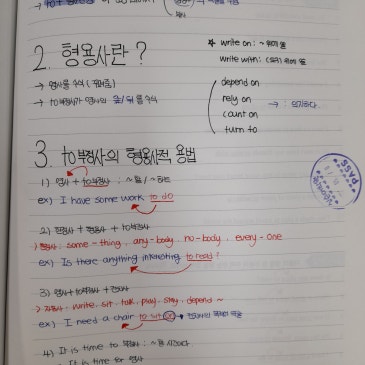 2. 형용사란?
→ 명사를 수식 (꾸며줌)
→ to부정사가 명사의 앞/뒤를 수식
* write on : ~위에 쓸
write with : (도구) 위에 쓸
depend on
rely on
count on
turn to
→ : 의지하다.
3. to부정사의 형용사적 용법
1) 명사 + to부정사 : ~할 / ~하는
ex) I have some work to do
2) 한정사 + 형용사 + to부정사
some-thing, any-body, no-body, every-one
ex) Is there anything interesting to read?
3) 명사 + to부정사 + 전치사
write, sit, talk, play, stay, depend ~
ex) I need a chair to sit on → 전치사의 목적어 역할
4) It is time to 부정사 : ~할 시간이다.
It is time for 명사
PASS